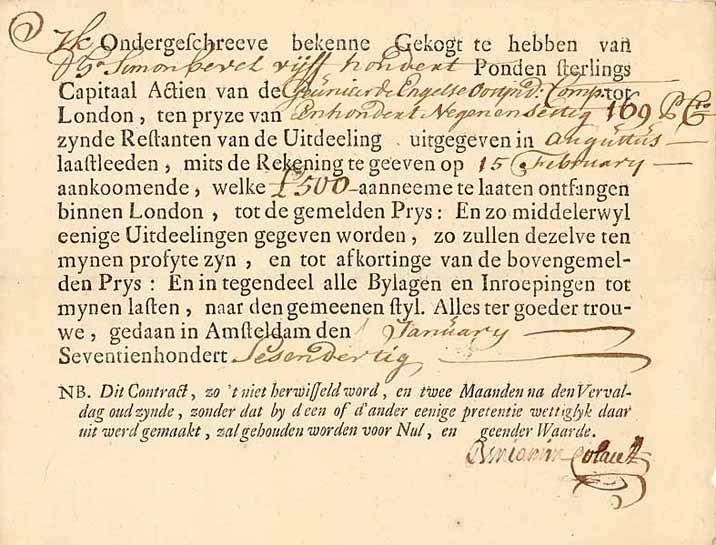 Ik Ondergeschreeve bekenne Gekogt te hebben van
Simon Bevel vijff hondert Ponden sterlings
Capitaal Actien van de Geünieerde Engelse Oostind: Comp: tot
London, ten pryze van Eenhondert Negenensestig 169 P Cto
zynde Restanten van de Uitdeeling uitgegeven in augustus
laastleeden, mits de Rekening te geeven op 15 February
aankoomende, welke £500 aanneeme te laaten ontfangen
binnen London, tot de gemelden Prys: En zo middelerwyl
eenige Uitdeelingen gegeven worden, zo zullen dezelve ten
mynen profyte zyn, en tot afkortinge van de bovengemel-
den Prys: En in tegendeel alle Bylagen en Inroepingen tot
mynen lasten, naar den gemeenen styl. Alles ter goeder trou-
we, gedaan in Amsteldam den 1 January
Seventienhondert Sesendertig
NB. Dit Contract, zo 't niet herwisseld word, en twee Maanden na den Verval-
dag oud zynde, zonder dat by d een of d'ander eenige pretentie wettiglyk daar
uit werd gemaakt, zal gehouden worden voor Nul, en geender Waarde.